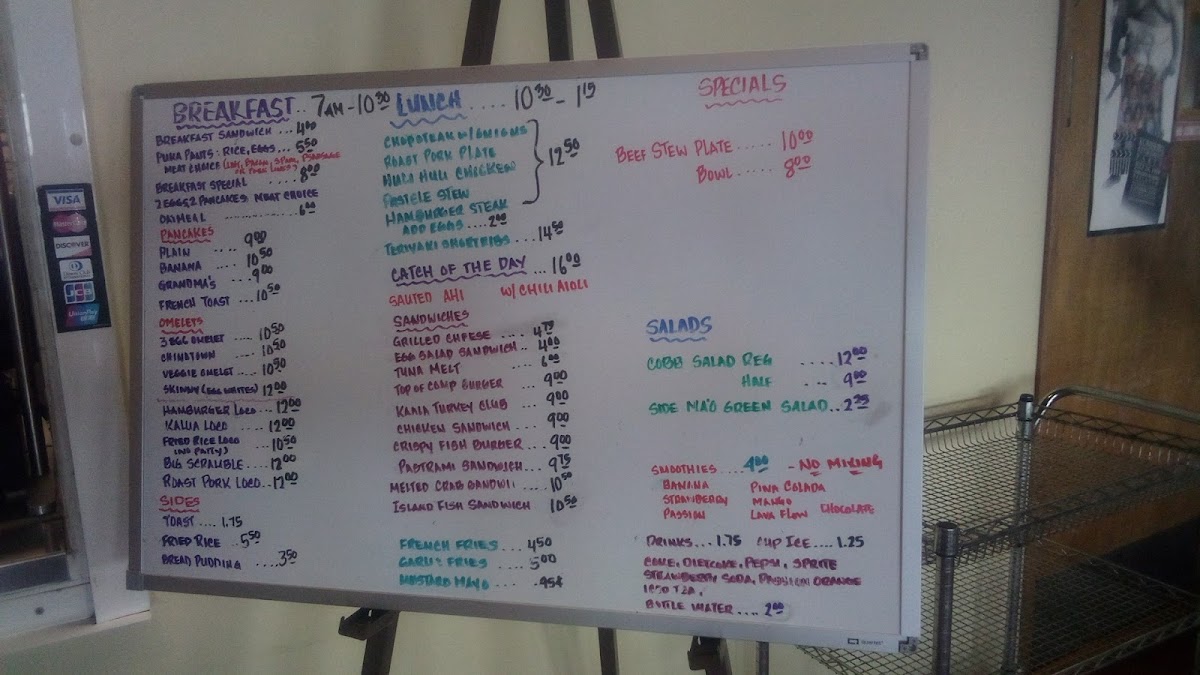 BREAKFAST.. 7AM - 10:30
BREAKFAST SANDWICH ... 4.00
PUKA PANTS: RICE, EGGS... 5.50
MEAT CHOICE
BREAKFAST SPECIAL .... 8.00
2 EGGS, 2 PANCAKES: MEAT CHOICE
OATMEAL ............ 6.00
PANCAKES
PLAIN .... 9.00
BANANA .... 10.50
GRANDMA'S ... 9.00
FRENCH TOAST ... 10.50
OMELETS
3 EGG OMELET ... 10.50
CHINATOWN .... 10.50
VEGGIE OMELET .... 10.50
SKINNY (EGG WHITES) 12.00
HAMBURGER LOCO... 12.00
KALUA LOCO .... 12.00
FRIED RICE LOCO
(NO PATTY) ....10.50
BIG SCRAMBLE.... 12.00
ROAST PORK LOCO..12.00
SIDES
TOAST .... 1.75
FRIED RICE ... 5.50
BREAD PUDDING ....3.50
LUNCH .... 10:30 - 1:15
CHOPSTEAK W/ONIONS
ROAST PORK PLATE
HULI HULI CHICKEN
PASTELE STEW
HAMBURGER STEAK
12.50
ADD EGGS .... 2.00
TERIYAKI SHORTRIBS ... 14.50
CATCH OF THE DAY ... 16.00
SAUTED AHI W/ CHILI AIOLI
SANDWICHES
GRILLED CHEESE .... 4.75
EGG SALAD SANDWICH.. 4.00
TUNA MELT .... 6.00
TOP OF CAMP BURGER ... 9.00
KAALA TURKEY CLUB ... 9.00
CHICKEN SANDWICH ... 9.00
CRISPY FISH BURGER ... 9.00
PASTRAMI SANDWICH... 9.75
MELTED CRAB SANDWI .... 10.50
ISLAND FISH SANDWICH 10.50
FRENCH FRIES ... 4.50
GARLIC FRIES .... 5.00
MUSTARD MAYO ... .95¢
SPECIALS
BEEF STEW PLATE ..... 10.00
BOWL ..... 8.00
SALADS
COBB SALAD REG .... 12.00
HALF ... 9.00
SIDE MA'O GREEN SALAD.. 2.25
SMOOTHIES ....4.00 - NO MIXING
BANANA PINA COLADA
STRAWBERRY MANGO
PASSION LAVA FLOW CHOCOLATE
DRINKS... 1.75 CUP ICE.... 1.25
COKE, DIET COKE, PEPSI, SPRITE
STRAWBERRY SODA, PASSION ORANGE
ICED TEA,
BOTTLE WATER .... 2.00
VISA
DISCOVER
JCB
UnionPay